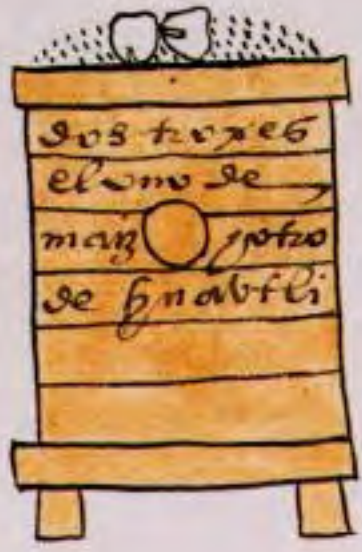 dos troxes
el vno de
maiz y otro
de huavtli